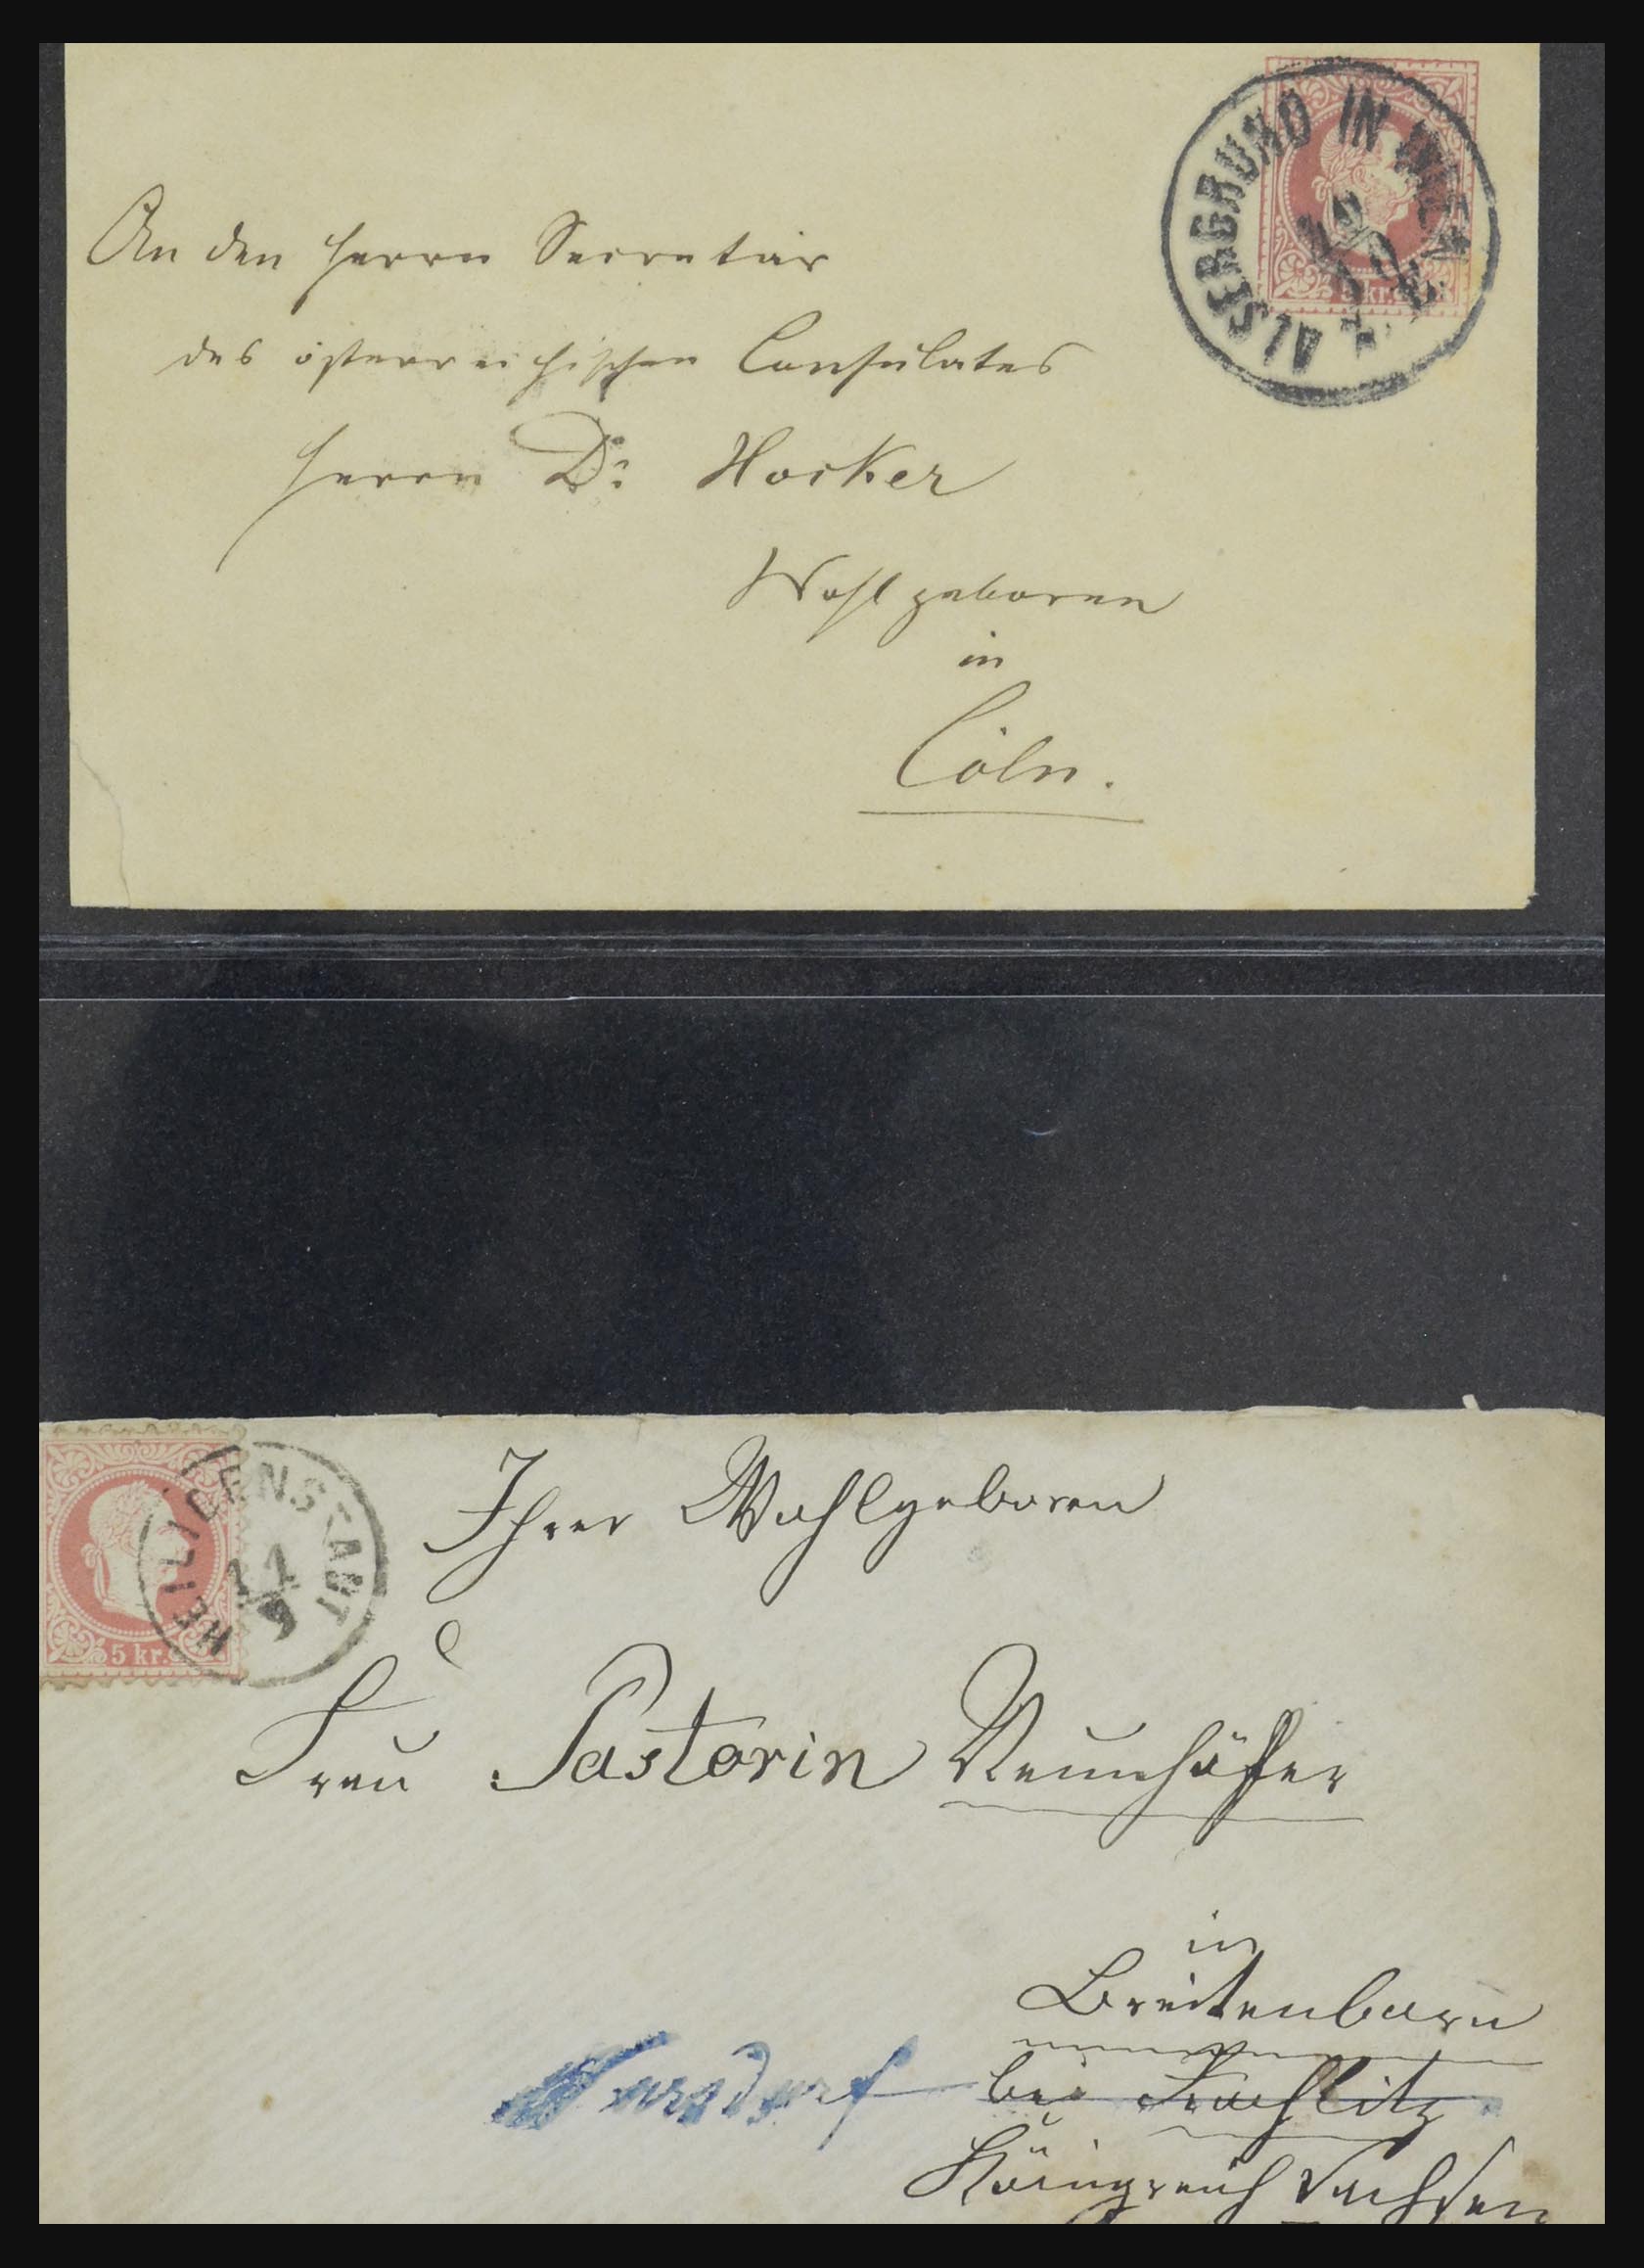 ALSERGRUND IN WIEN
5 kr.
An den Herrn Secretär
des österreichischen Consulates
Herrn Dr. Hocker
Wohlgeboren
in
Cöln.
HEILIGENSTADT
14
9
5 kr.
Ihrer Wohlgeboren
Frau Pastorin
in
Breitenborn
bei Rochlitz
Königreich Sachsen